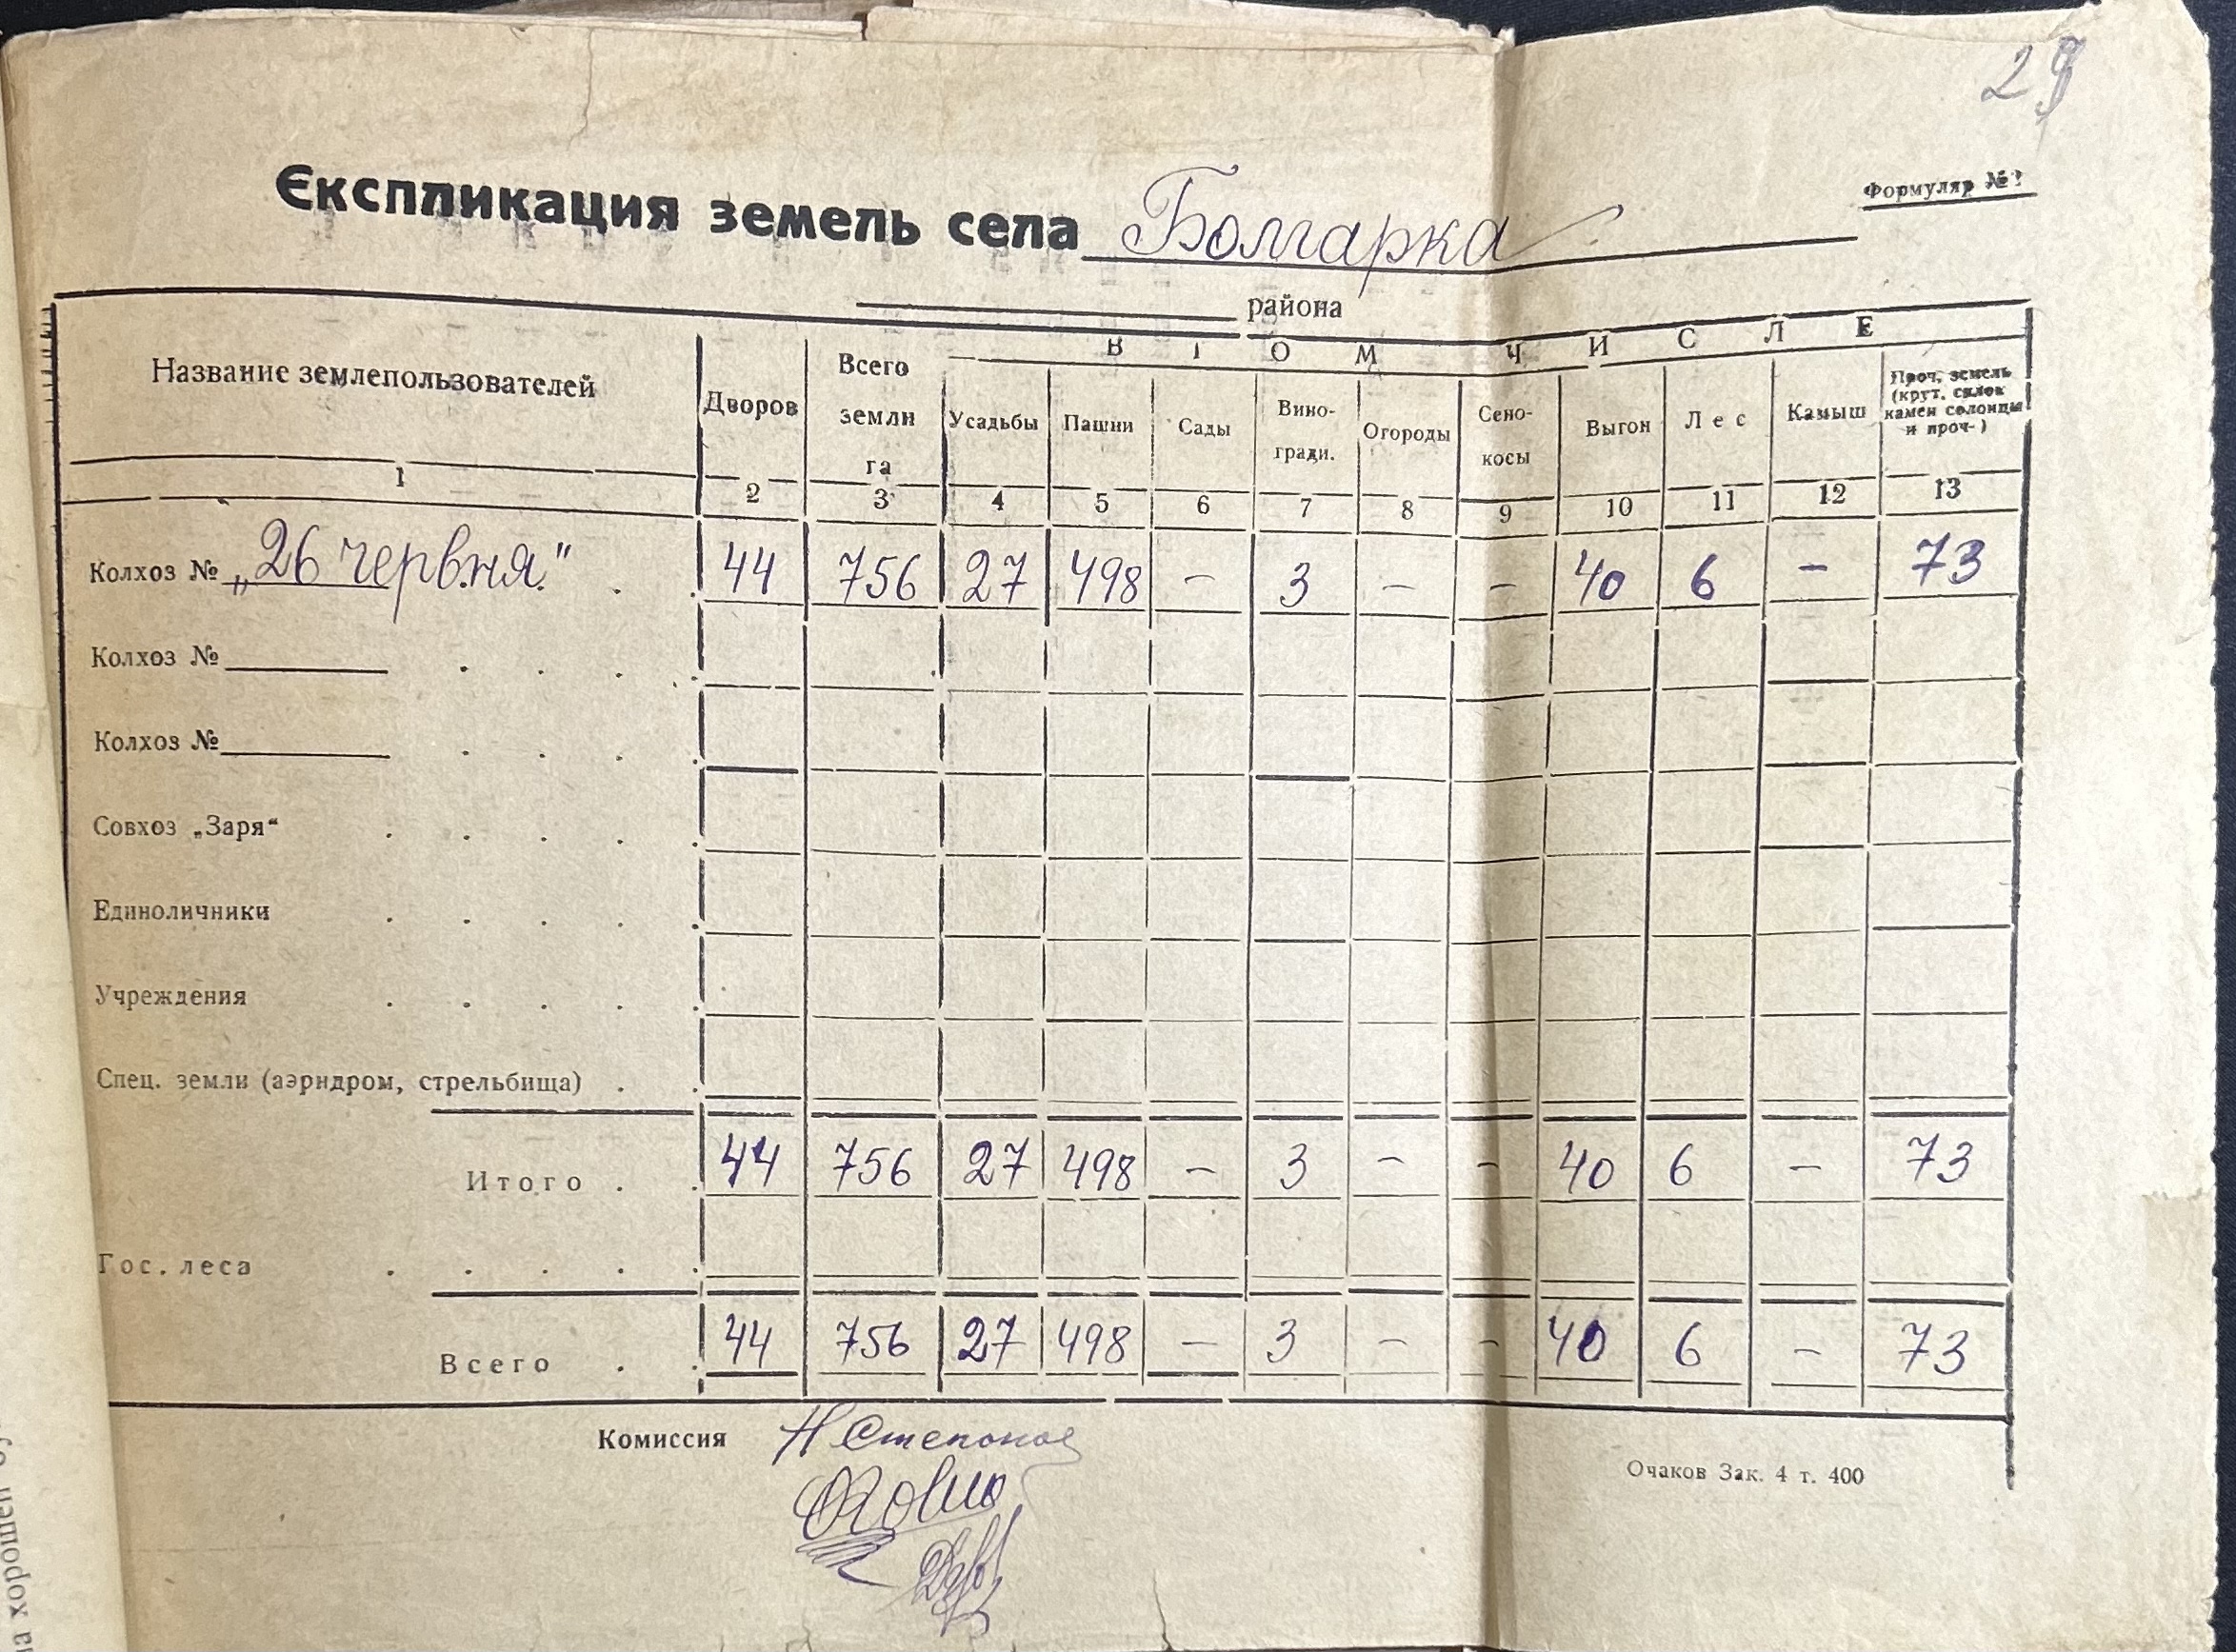 29
Формуляр №
Експликация земель села Болгарка
района
Название землепользователей | Дворов | Всего земли га | В том числе
Усадьбы | Пашни | Сады | Виногради. | Огороды | Сенокосы | Выгон | Лес | Камыш | Проч. земель (крут. склон камен солонцы и проч-)
1 | 2 | 3 | 4 | 5 | 6 | 7 | 8 | 9 | 10 | 11 | 12 | 13
Колхоз № „26 червня." | 44 | 756 | 27 | 498 | – | 3 | – | – | 40 | 6 | – | 73
Колхоз №
Колхоз №
Совхоз „Заря“
Единоличники
Учреждения
Спец. земли (аэрндром, стрельбища)
Итого | 44 | 756 | 27 | 498 | – | 3 | – | – | 40 | 6 | – | 73
Гос. леса
Всего | 44 | 756 | 27 | 498 | – | 3 | – | – | 40 | 6 | – | 73
Комиссия
Очаков Зак. 4 т. 400